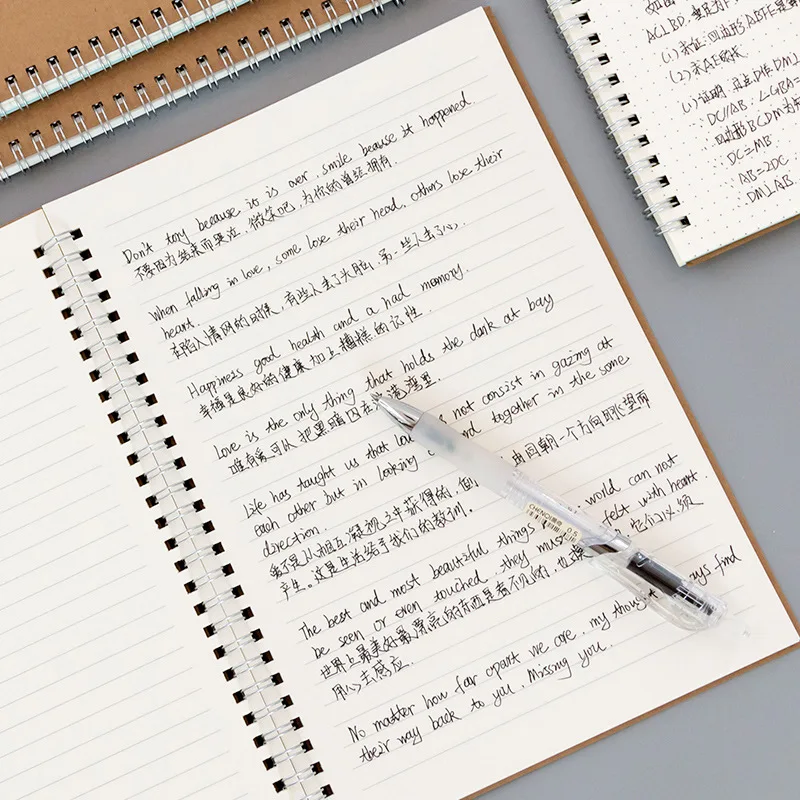 Don't because it is over, smile beause it happened.
不要因为结束而哭泣,微笑吧,为你的曾经拥有.
When falling in love, some lose their head, others lose their
heart.
在陷入情网的时候,有些人丢了头脑,另一些人丢了心.
Happiness good health and a had memory.
幸福是良好的健康加上糟糕的记性.
Love is the only thing that holds the dark at bay
唯有爱可以把黑暗囚在 港湾里.
Life has taught us that not consist in gazing at
each other but in looking together in the same
direction.
爱不是从相互凝视之中获得的,但 由同朝一个方向眺望而
产生。这是生活给予我们的教训。
The best and most beautiful things world can not
be seen or even touched. they must felt with heart.
世界上最美好最漂亮的东西是看不见的,也 它们必须
用心去感应.
No matter how far apart we are, my find
their way back to you. Missing you.
0.5
AC⊥BD,
(1)求证:四边形ABFE是
(2)求AE的长
(1)证明:过点D作DM⊥
DC//AB ∠CBA=
四边形BCDM为
DC=MB
AB=2DC
DM⊥AB